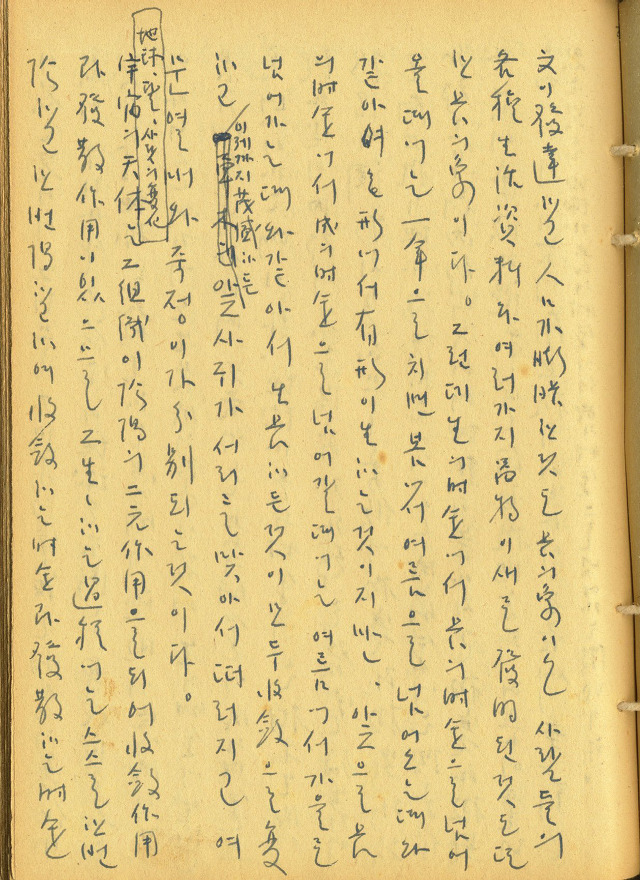 文이發達하고 人口가膨脹한것도 長의象이오 사람들의
各種生活資料와여러가지器物이새로發明된것도또
한長의象이다。그런데生의 에서長의 으로넘어
올때에는 一年으로치면 봄에서여름으로넘어오는때와
같아여 無形에서有形이生하는것이지만、앞으로長
의 에서成의 으로넘어갈때에는 여름에서가을로
넘어가는때와같아서 生長하든것이모두收斂으로變
하고 이제까지茂盛하든 앞사귀가서리를맞아서떠러지고 여
문열매와 죽정이가分別되는것이다。
地球、
宇宙의天体는그組織이陰陽의二元作用으로되어收斂作用
과發散作用이있으므로 그生々하는過程에는스스로한번
陰하고한번陽하고하여收斂하는 과發散하는